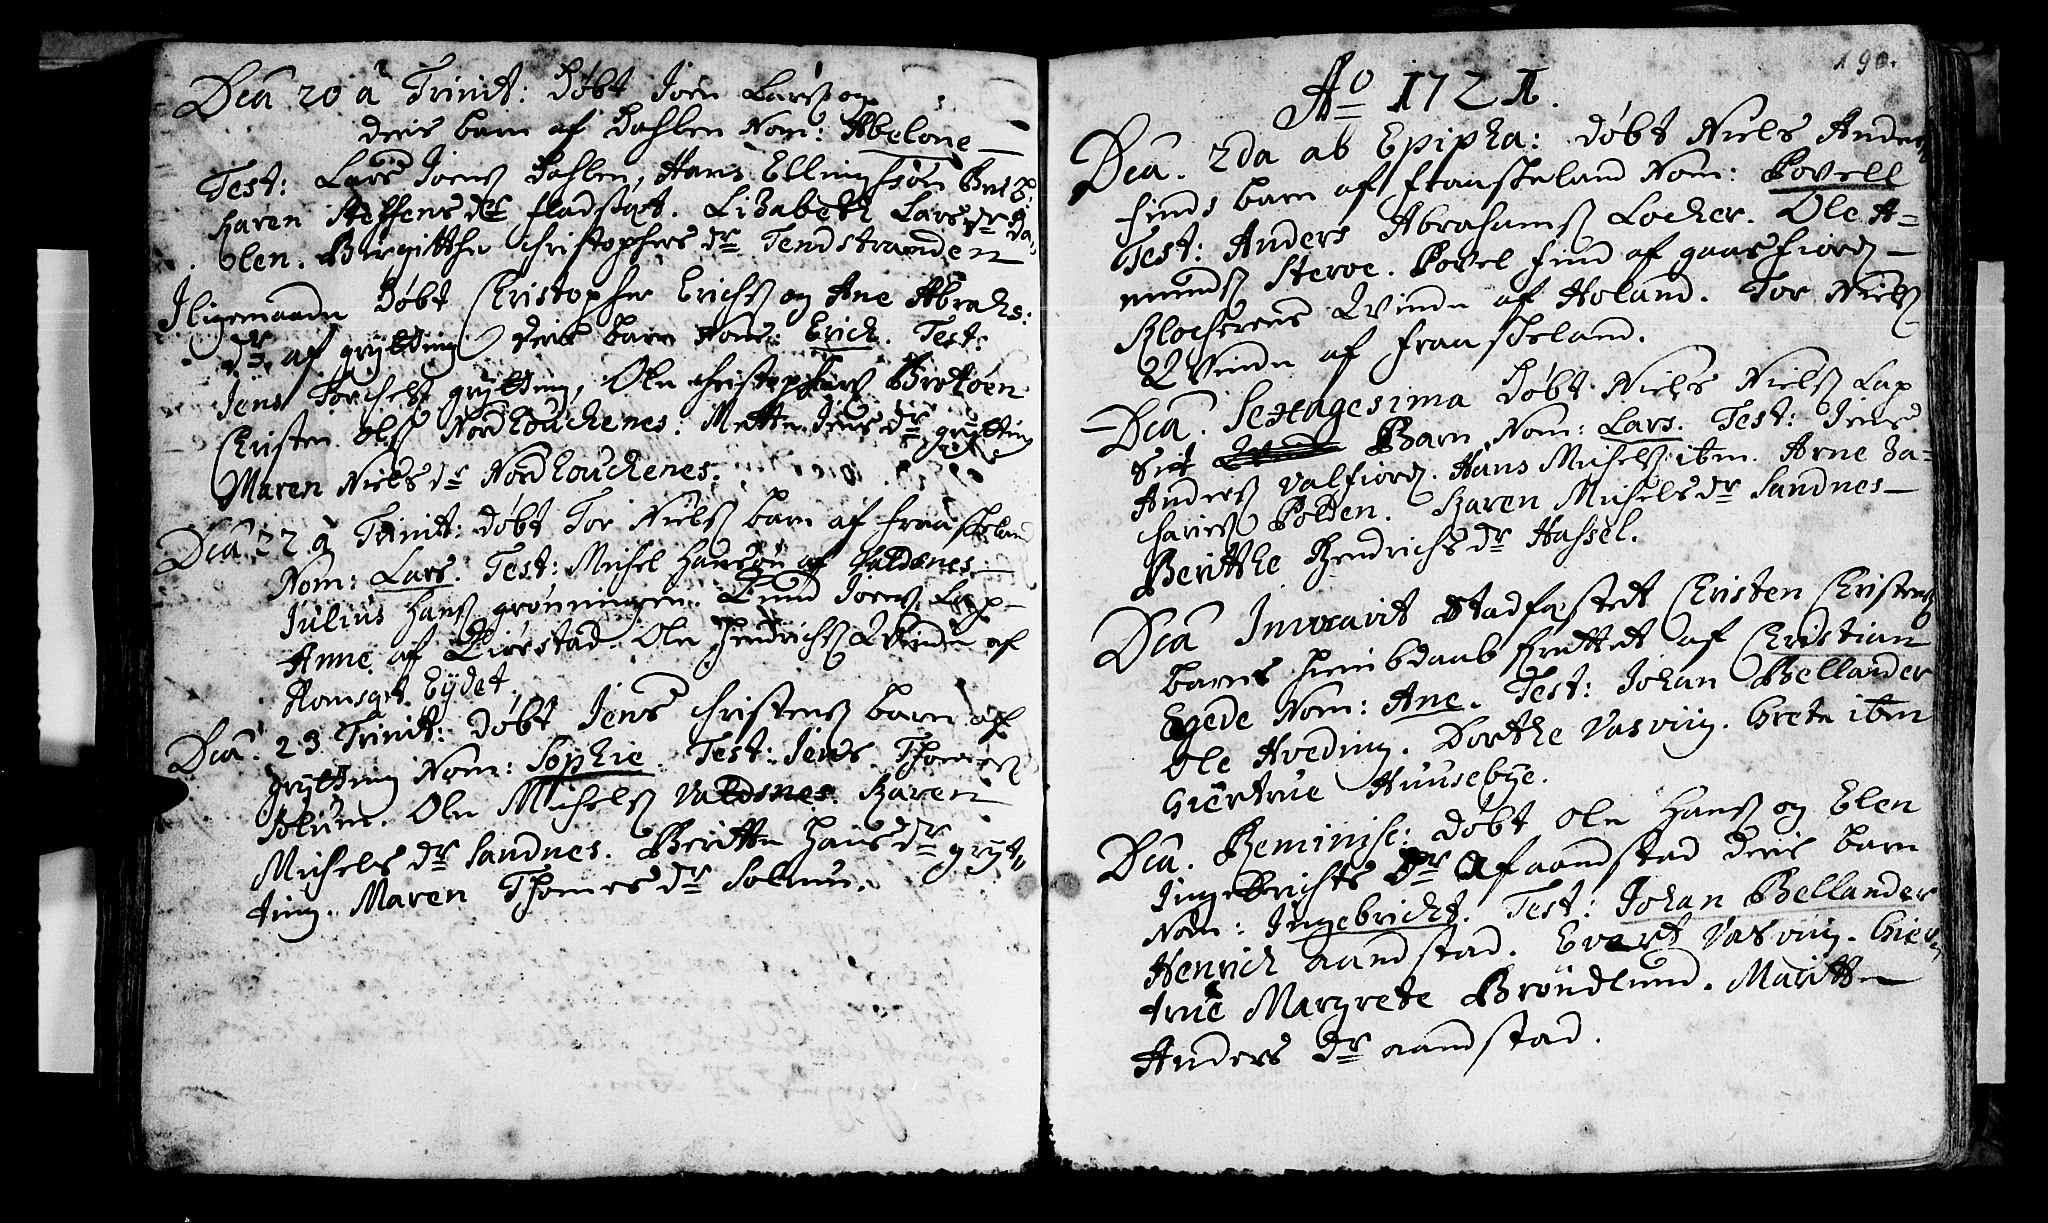 Dca 20 à Trinit: Døbt Joen Larsß og
deris barn af Dahlen Nom: Abelone
Test: Lars Joensß Dahlen, Hans Ellingssøn
Karen Steffens dr fladsæt. Lisabeth Lars dr da-
len. Birgitthe Christophers dr Tendstranden
Iligemaade Døbt Christopher Erichsß og Ane Abrahs:
dr. af grytting deris barn Nom: Erich. Test:
Jens Torchelsß grytting, Ole Christophersß
Christen Olsß Nordhouchenes: Mette Jens dr grytting
Maren Niels dr Nordhouchenes.
Dca 22 à Trinit: døbt Tor Nielsß barn af fraaskeland
Nom: Lars. Test: Michel Hansøn af Valdsnes.
Julius Hansß grønningen. Knud Joensß Lap-
Anne af Liørstad. Ole Hendrichsß Qvinde af
Eydet.
Dca. 23 Trinit: døbt Jens Christensß barn af
grytting Nom: Sophie. Test: Jens Thomesß
Ole Michelsß Valdsnes. Karen
Michels dr Sandnes. Beritte Hans dr gryt-
ting. Maren Thomes dr Solum.
190.
Ao 1721.
Dca. 2da ab Epipha: døbt Niels Andersß
finds barn af fraaskeland Nom: Povell
Test: Anders Abrahamsß Locker. Ole A-
mundsß Steroe. Povel find af gaasfiord
Klocherens Qvinde af Holand. Tor Nielsß
Qvinde af fraaskeland.
Dca. Sexagesima Døbt Niels Nielsß Lap
Sit Barn Nom: Lars. Test: Jens
Andersß Valfiord. Hans Michelsß ibm. Arne Za-
chariesß Polden. Karen Michels dr Sandnes
Beritthe Hendrichs dr Hassel.
Dca Invocavit Stadfæstedt Christen Christensß
barns hiembdaab forrettet af Christian
Egede Nom: Ane. Test: Johan Bellander
Ole Hveding. Dorthe Vasving. Grete ibm
Giertrue Huusebye.
Dca. Reminisc: døbt Ole Hansß og Elen
Ingebrichts Dr Af aandstad deris barn
Nom: Ingebricht. Test: Johan Bellander
Henrich aandstad. Evert Vasving. Gier-
true Margrete Brøndlund. Maritte
Anders dr aandstad.